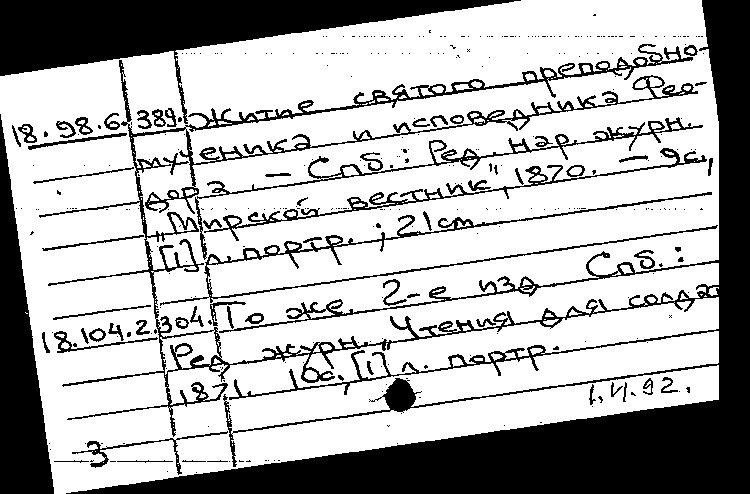 18.98.6.389. Житие святого преподобно-
мученика и исповедника Фео-
дора. — Спб.: Ред. нар. журн.
„Мирской вестник", 1870. — 9с.,
[1] л. портр. ; 21cm.
18.104.2.304. То же. 2-е изд. Спб.:
Ред. журн. „Чтения для солдат
1871. 10с., [1] л. портр.
3